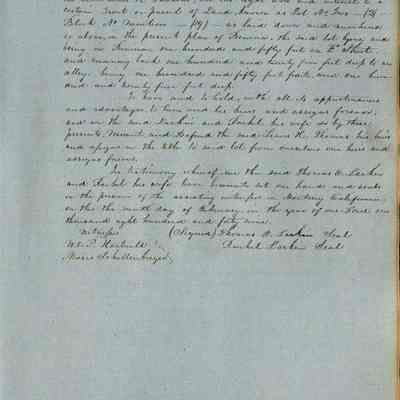 certain tract or parcel of Land known as Lot No Two — (2)
Block No Nineteen — (19) — as laid down and numbered
is above, in the present plan of Benicia, the said lot lying and
being in Benicia one hundred and fifty feet on E Street
and running back one hundred and twenty five feet deep to an
alley, being one hundred and fifty feet front, and one hun
dred and twenty five feet deep.
To have and to hold, with all its appurtenances
and advantages to him and his heirs and assigns forever,
and we the said Larkin and Rachel his wife do by these
presents, Warrant and Defend the said Lewis H. Thomas his heirs
and assigns in the title to said lot from ourselves our heirs and
assigns forever.
In testimony whereof we the said Thomas O. Larkin
and Rachel his wife have hereunto set our hands and seals
in the presence of the assisting witnesses in Monterey California
on this the ninth day of February in the year of our Lord one
thousand eight hundred and forty nine.
Witnesses (Signed) Thomas O. Larkin Seal
W. E. P. Hartnell Rachel Larkin Seal
Moses Schallenberger